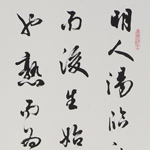 明人湯臨
而後生始
如熟而為